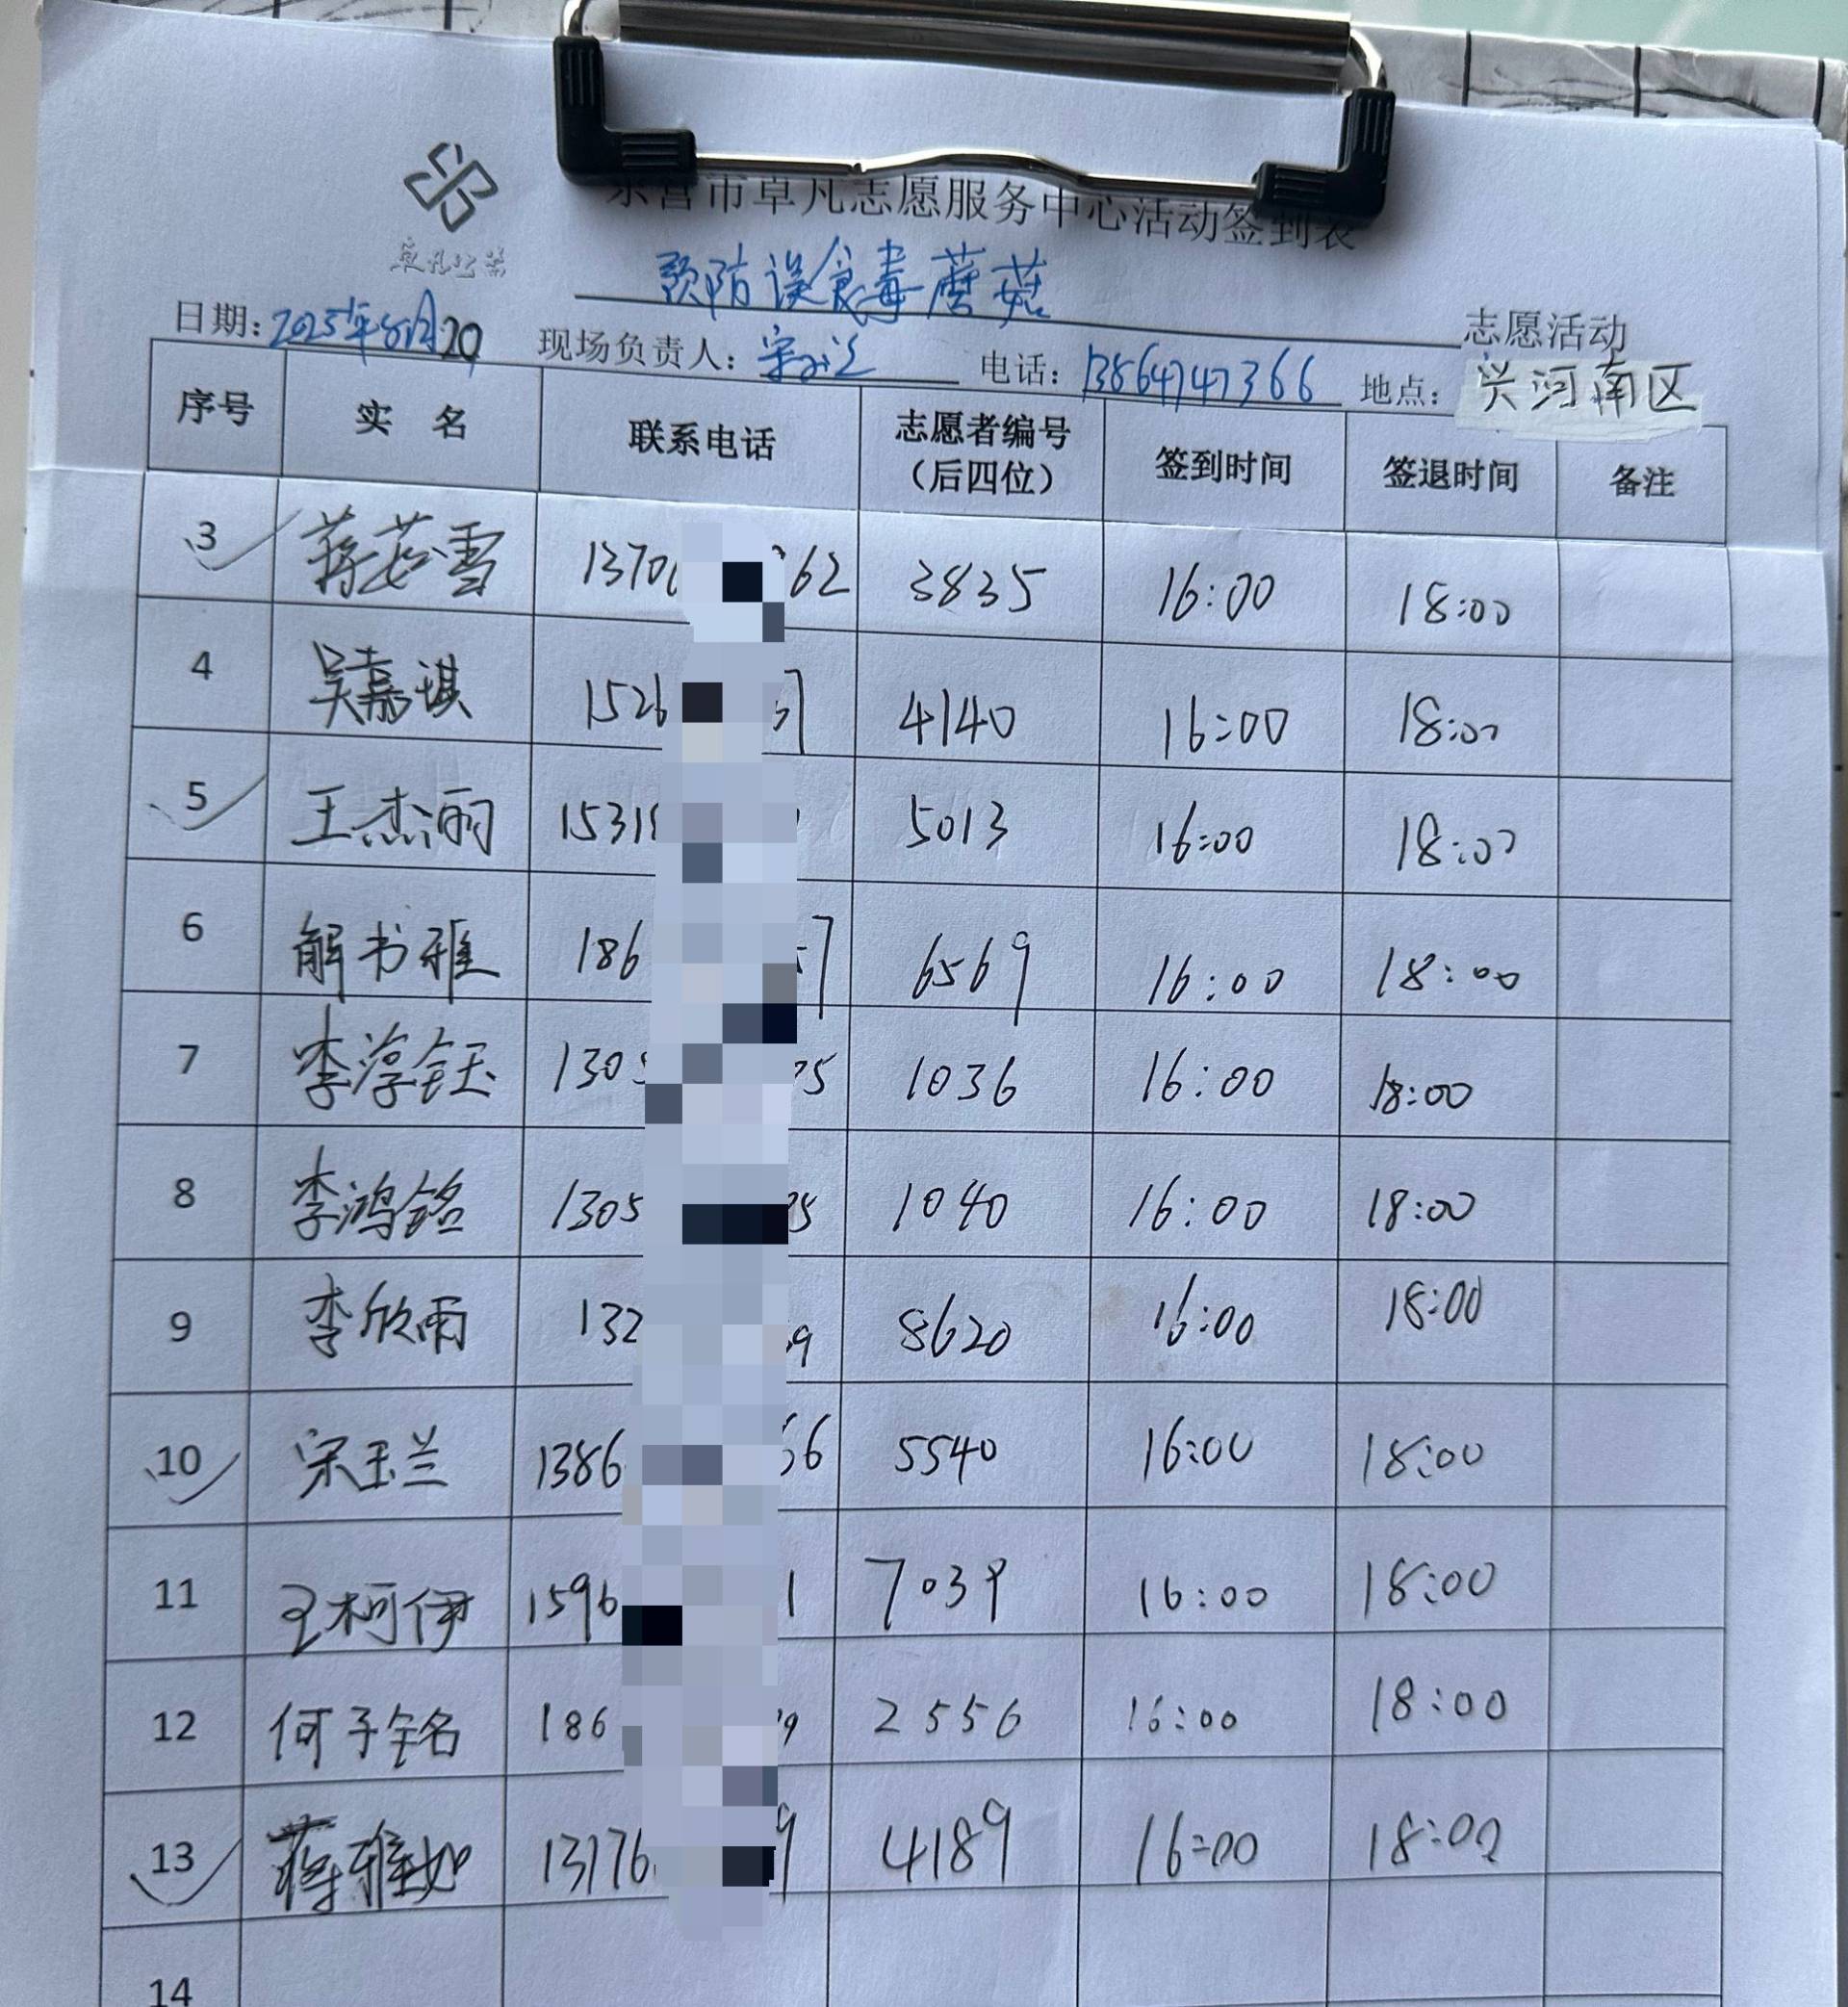 东营市卓凡志愿服务中心活动签到表
卓凡公益
预防误食毒蘑菇 志愿活动
日期:2025年8月20 现场负责人: 电话:13864747366 地点:兴河南区
序号 实 名 联系电话 志愿者编号（后四位） 签到时间 签退时间 备注
3 蒋茹雪 1370 62 3835 16:00 18:00
4 吴嘉琪 1526 7 4140 16:00 18:00
5 王杰丽 1531 5013 16:00 18:00
6 解书雅 186 7 6569 16:00 18:00
7 李淳钰 130 5 1036 16:00 18:00
8 李鸿铭 1305 5 1040 16:00 18:00
9 李欣雨 132 9 8620 16:00 18:00
10 宋玉兰 1386 66 5540 16:00 18:00
11 王柯伊 1596 1 7039 16:00 18:00
12 何子铭 186 9 2556 16:00 18:00
13 蒋雅如 13176 9 4189 16:00 18:00
14